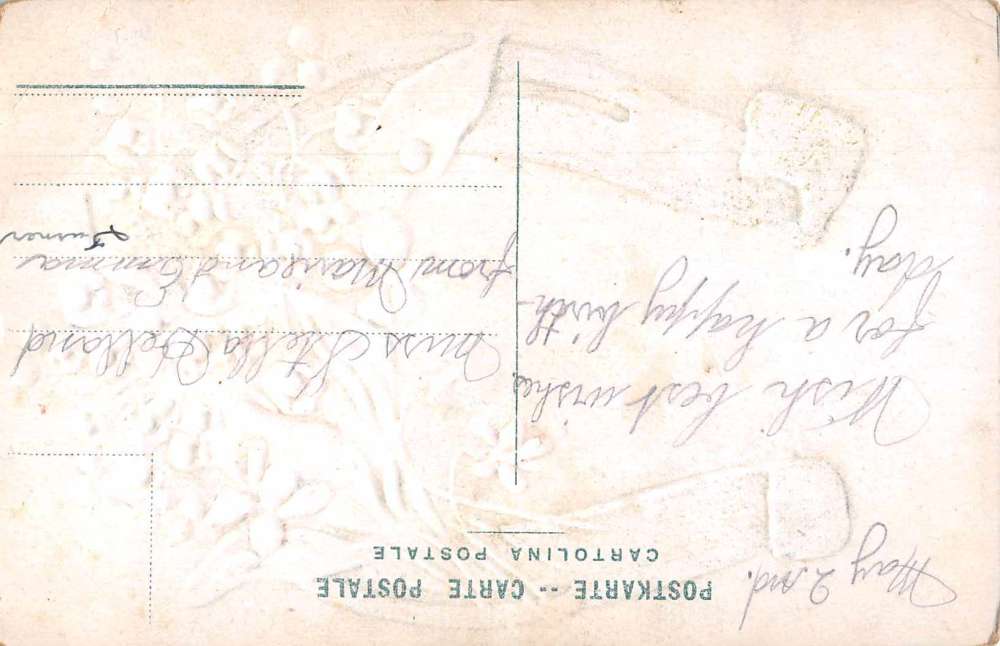 POSTKARTE -- CARTE POSTALE
CARTOLINA POSTALE
May 2nd.
With best wishes
for a happy birth-
day.
Miss Stella Dellard
from Marie and Emma
Turner